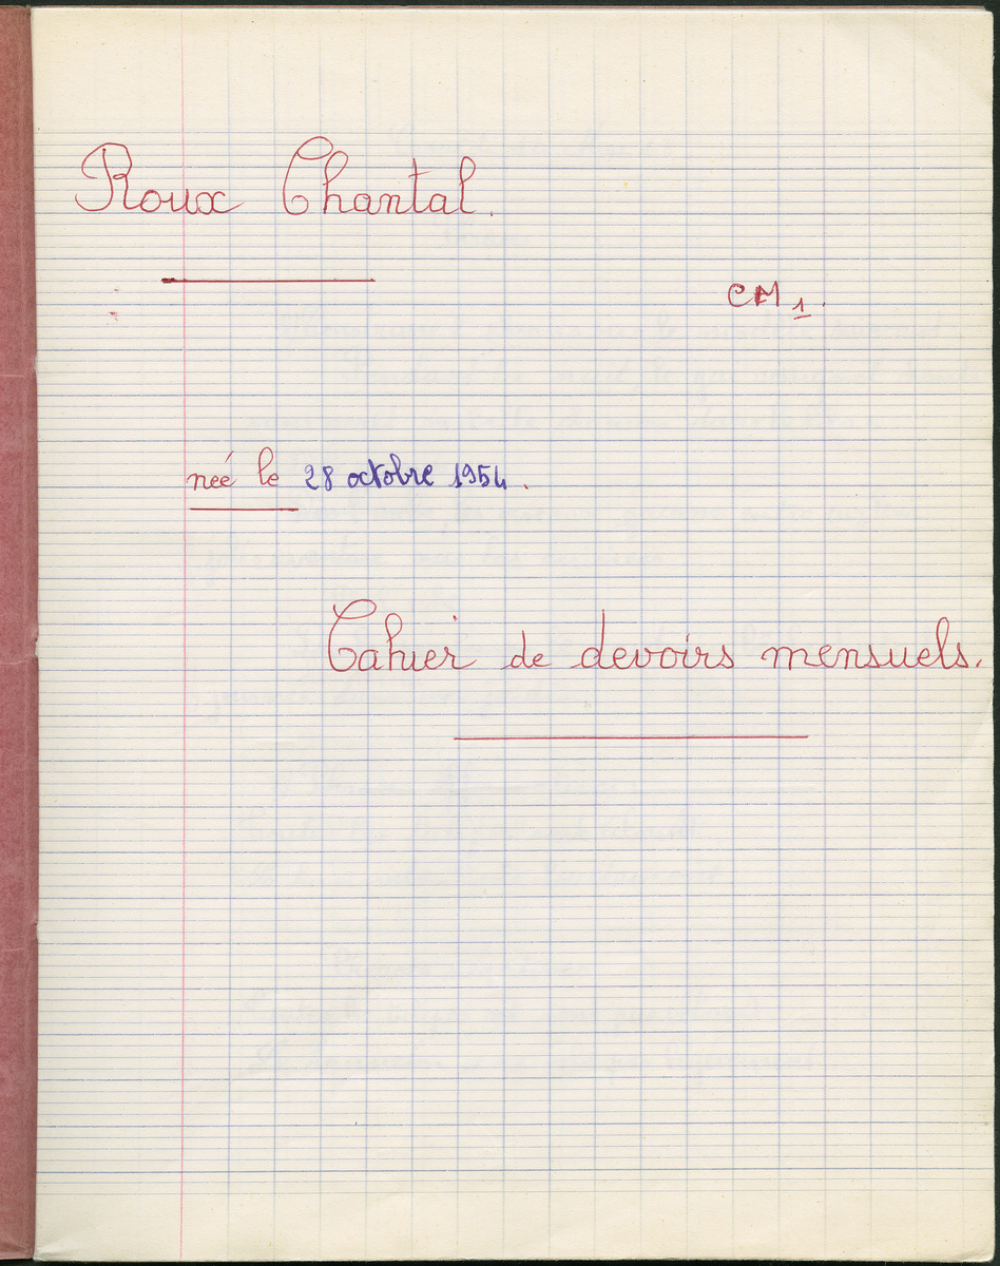 Roux Chantal.
CM1.
neé le 28 octobre 1954.
Cahier de devoirs mensuels.